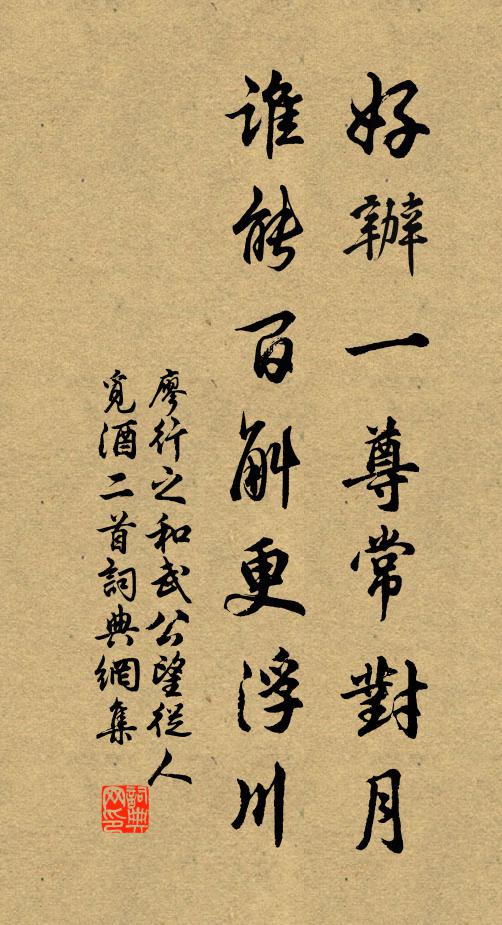 好辦一尊常對月
誰能百斛更浮川
廖行之和武公望從人
覓酒二首詞典網集
詞典網印